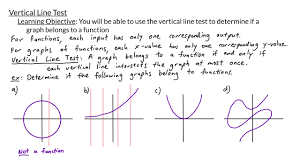 Vertical Line Test
Learning Objective: You will be able to use the vertical line test to determine if a
graph belongs to a function
For functions, each input has only one corresponding output.
For graphs of functions, each x-value has only one corresponding y-value.
Vertical Line Test: A graph belongs to a function if and only if
each vertical line intersects the graph at most once.
ex: Determine if the following graphs belong to functions.
a) b) c) d)
Not a function